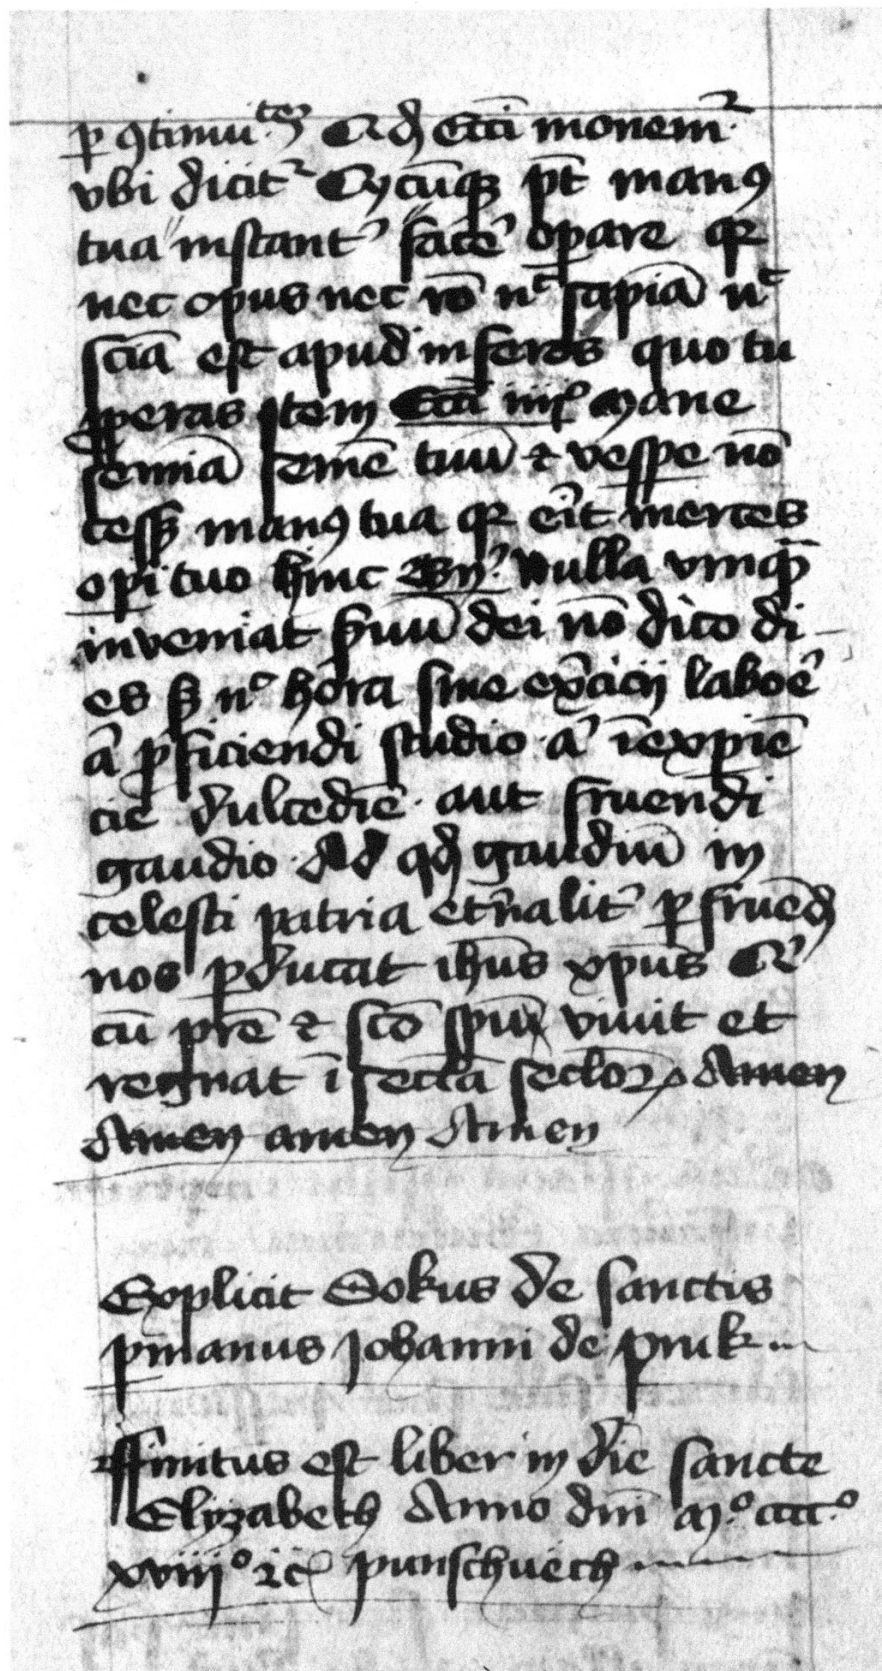 p ꝯtinui.tem Ad qd Ecci monemr
vbi dicitr Qucūqꝫ pt manꝰ
tua instant' face' opare qr
nec opus nec rō nc sapia nc
scia est apud inferos quo tu
pperas Item Ecci iiijo Mane
semia semē tuū ⁊ vespe nō
cesset manꝰ tua qr erit merces
opi tuo hinc Nulla vmqꝫ
inveniat suū dei nō dico di
es sꝫ nc hora sine exercicij laboe'
a' pficiendi studio · a' i expie
cie dulcedie · aut fruendi
gaudio Ad qd gaudiū in
celesti patria etnalit' pfruēd
nos pducat ihus xpus Qi
cū pre ⁊ sco spu viuit et
regnat i secla seclor Amen
Amen amen Amen
Explicit Sokus de sanctis
p manus Johanni de pruk
ffinitus est liber in die sancte
Elyzabeth Anno dni Mo cccco
xviijo ⁊c punschuech